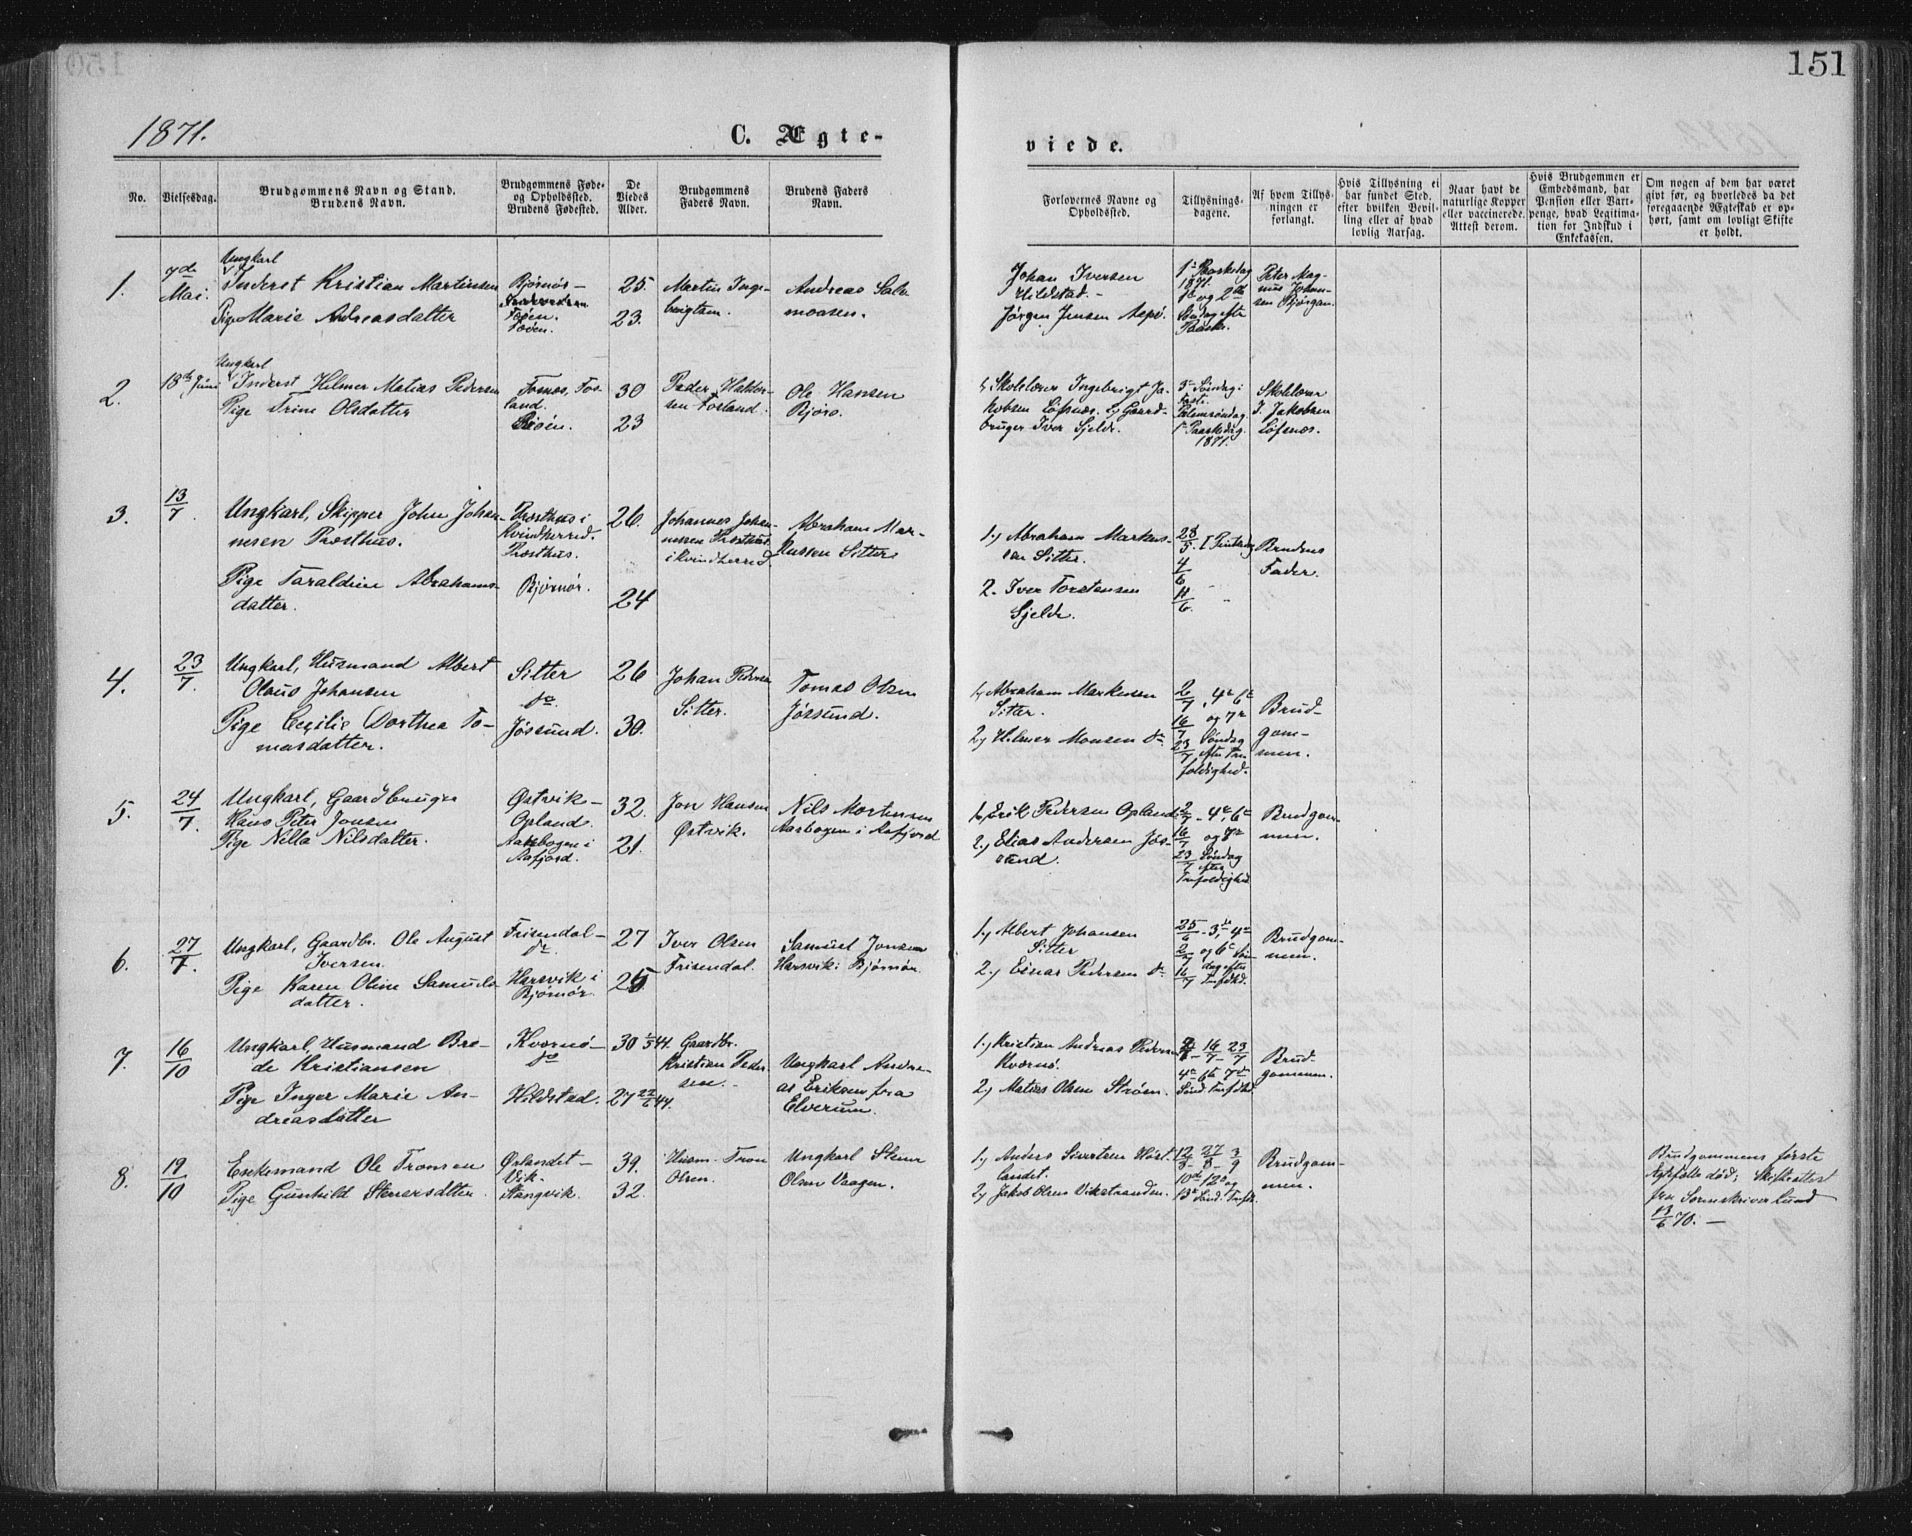 151
1871.
C. Ægte-
viede.
No.
Vielsesdag.
Brudgommens Navn og Stand.
Brudens Navn.
Brudgommens Føde-
og Opholdssted.
Brudens Fødested.
De
Viedes
Alder.
Brudgommens
Faders Navn.
Brudens Faders
Navn.
Forlovernes Navne og
Opholdssted.
Tillysnings-
dagene.
Af hvem Tillys-
ningen er
forlangt.
Hvis Tillysning ei
har fundet Sted,
efter hvilken Bevil-
ling eller af hvad
lovlig Aarsag.
Naar havt de
naturlige Kopper
eller vaccinerede.
Attest derom.
Hvis Brudgommen er
Embedsmand, har
Pension eller Vart-
penge, hvad Legitima-
tion for Indskud i
Enkekassen.
Om nogen af dem har været
givt før, og hvorledes da det
foregaaende Ægteskab er op-
hørt, samt om lovligt Skifte
er holdt.
1.
7de
Mai.
Ungkarl
Inderst Kristian Martinsen
Pige Marie Andreasdatter
Bjørnør-
25.
23.
Martin Inge-
brigtsen.
Andreas Salo-
monsen.
Johan Iversen
Hildstad.-
Jørgen Jensen
1ste Paaskedag
1871.
1ste og 2den
Søndag efter
Paaske.
Peter Mag-
nus Johan-
sen
2.
18de Juni
Ungkarl
Inderst Hilmer Matias Pedersen
Pige Trine Olsdatter
Fosnæs, Fos-
land.
30
23
Peder Haldor-
sen Fosland.
Ole Hansen
Bjørø.
1, Skolelærer Ingebrigt Ja-
kobsen Løfsnæs. 2, Gaard-
bruger Iver Sjelde.
3de Søndag i
Faste.
Palmesøndag.
1ste Paaskedag.
1871.
Skolelærer
I. Jakobsen
Løfsnæs.
3.
13/7.
Ungkarl, Skipper John Johan-
nesen Træsthus.
Pige Taraldine Abrahams-
datter.
Træsthus i
Kvindherred.
Træsthus.
Bjørnør.
26.
24
Johannes Johan-
nessen Træsthus
i Kvindherred.
Abraham Mar-
kussen Sitter
1., Abraham Markus-
sen Sitter.
2. Iver Torstensen
Sjelde.
28/5. I Pintsedag
4/6
11/6.
Brudens
Fader.
4.
23/7.
Ungkarl, Husmand Albert
Olaus Johansen
Pige Cecilie Dorthea To-
masdatter.
Sitter
do
Jøssund.
26
30.
Johan Pedersen
Sitter.
Tomas Olsen
Jøssund.
1, Abraham Markusen
Sitter.
2, Hilmer Monsen do
2/7, 4de 6te
16/7 og 7de
23/7 Søndag
efter Tre-
foldighed.
Brud-
gom-
men.
5.
24/7.
Ungkarl, Gaardbruger
Hans Peter Jonsen
Pige Nilla Nilsdatter.
Østvik-
Opland.
Aarbogen i
Aafjord.
32.
21.
Jon Hansen
Østvik.
Nils Mortensen
Aarbogen i Aafjord
1, Erik Pedersen Opland
2., Elias Andersen Jøs-
sund.
2/7 - 4de, 6te
16/7 og 7de
23/7 Søndag
efter
Trefoldighed
Brudgom-
men.
6.
27/7.
Ungkarl, Gaardbr. Ole August
Iversen.
Pige Karen Oline Samuels-
datter.
Frisendal-
do
Harsvik i
Bjørnør.
27
25.
Iver Olsen
Frisendal.
Samuel Jonsen
Harsvik i Bjørnør.
1., Albert Johansen
Sitter
2., Einar Pedersen do
25/6 - 3de, 4de
2/7 og 6te Søn-
dag efter
16/7 Trefdhd.
Brudgom-
men.
7.
16/10
Ungkarl, Husmand Bro-
de Kristiansen
Pige Inger Marie An-
dreasdatter
Kvernø-
do
Hildstad.
30 1/5 41.
27 22/6 44.
Gaardbr.
Kristian Peder-
sen.-
Ungkarl Andre-
as Eriksen fra
Elverum.
1., Kristian Andreas Pedersen
Kvernø.
2., Matias Olsen Strøm.
2/7 - 16/7 - 23/7
4de 6te 7de
Sønd. Trefdhd.
Brud-
gommen.
8.
19/10
Enkemand Ole Tronsen
Pige Gunhild Stenersdtter.
Ørlandet-
Vik.-
Stangvik.
39.
32.
Husm. Tron
Olsen.
Ungkarl Stener
Olsen Vaagen.
1., Anders Sivertsen
landet.
2, Jakob Olsen Vikstranden.
13/8 - 27/8 - 3/9
10de 12te og
13de Sønd. Trefh.
Brudgom-
men.
Brudgommens første
Egtefælle død; Skifteattest
fra Sorenskriver Lund
13/6 70. -